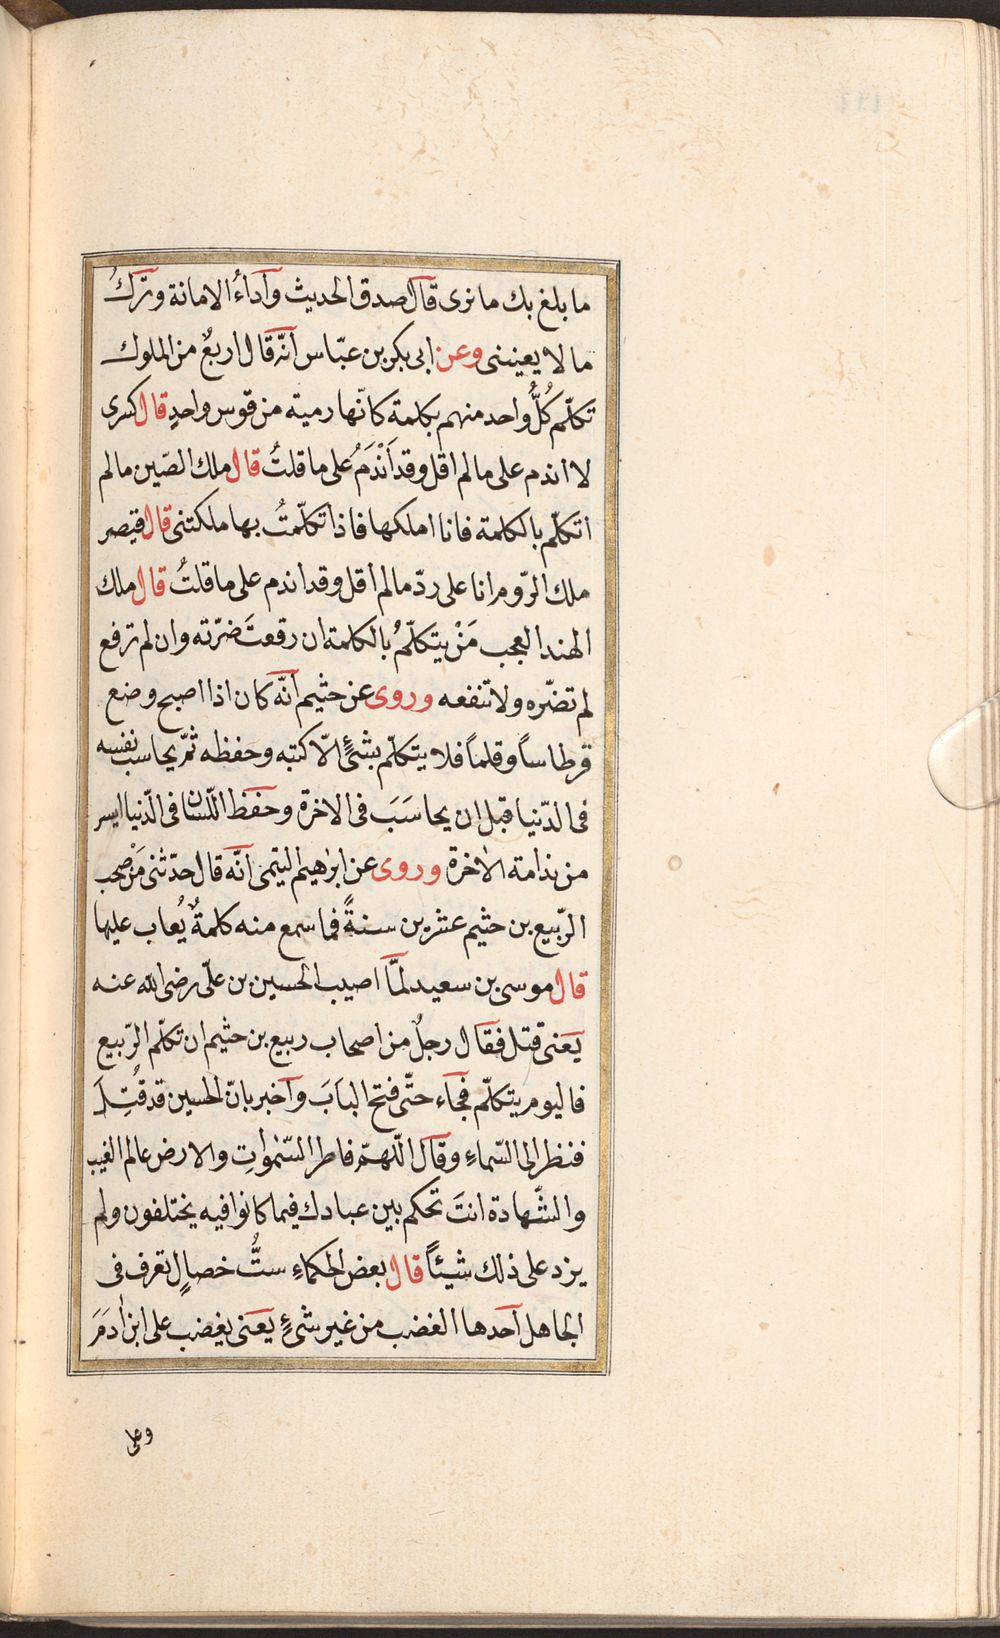 ما بلغ بك ما نرى قال صدق الحديث وآداءُ الامانة وتركُ
ما لا يعيننى وعن ابى بكر بن عبّاس انّه قال اربعٌ من الملوك
تكلّم كُلُّ واحد منهم بكلمة كانّها رميته من قوس واحدٍ قال كسرى
لا اندم على ما لم اقل وقد اَنْدَمُ على ما قلتُ قال ملك الصّين ما لم
اتكلّم بالكلمة فانا املكها فاذا تكلّمتُ بها ملكتنى قال قيصر
ملك الرّوم انا على ردّ ما لم اقل وقد اندم على ما قلتُ قال ملك
الهند العجب مَنْ يتكلّمُ بالكلمة ان رفعتَ ضرّته وان لم ترفع
لم تضرّه ولا تنفعه وروى عن حثيم انّه كان اذا اصبح وضع
قرطاساً وقلماً فلا يتكلّم بشئٍ الّا كتبه وحفظه ثمّ يحاسب نفسه
فى الدّنيا قبل ان يحاسَبَ فى الاخرة وحفظ اللّسان فى الدّنيا ايسر
من ندامة الاخرة وروى عن ابرٰهيم التيمى انّه قال حدّثنى مَنْ صحب
الرّبيع بن حثيم عشرين سنةً فما سمع منه كلمةٌ يُعاب عليها
قال موسى بن سعيد لمّا اصيب الحسين بن علىّ رضى الله عنه
يعنى قتل فقال رجلٌ من اصحاب ربيع بن حثيم ان تكلّم الرّبيع
فاليوم يتكلّم فجاء حتّى فتح البابَ وآخبر بانّ الحسين قد قُتِلَ
فنظر الى السّماءِ وقال اللّهمّ فاطر السّمٰواتِ والارض عالم الغيب
والشّهادة انتَ تحكم بين عبادك فيما كانوا فيه يختلفون ولم
يزد على ذلك شيئاً قال بعض الحكماءِ ستُّ خصالٍ تعرف فى
الجاهل آحدها الغضب من غير شئٍ يعنى يغضب على ابن اٰدَمَ
وعلى